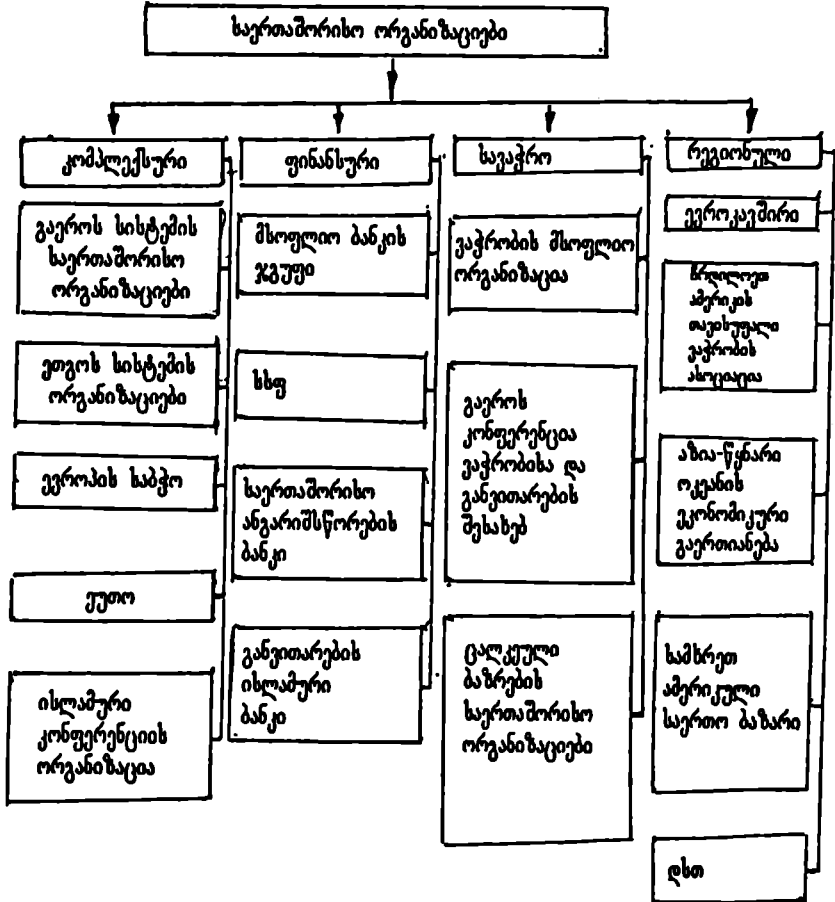 საერთაშორისო ორგანიზაციები
კომპლექსური
გაეროს სისტემის
საერთაშორისო
ორგანიზაციები
ეთგოს სისტემის
ორგანიზაციები
ევროპის საბჭო
ეუთო
ისლამური
კონფერენციის
ორგანიზაცია
ფინანსური
მსოფლიო ბანკის
ჯგუფი
სსფ
საერთაშორისო
ანგარიშსწორების
ბანკი
განვითარების
ისლამური
ბანკი
სავაჭრო
ვაჭრობის მსოფლიო
ორგანიზაცია
გაეროს
კონფერენცია
ვაჭრობისა და
განვითარების
შესახებ
ცალკეული
ბაზრების
საერთაშორისო
ორგანიზაციები
რეგიონული
ევროკავშირი
ჩრდილოეთ
ამერიკის
თავისუფალი
ვაჭრობის
ასოციაცია
აზია-წყნარი
ოკეანის
ეკონომიკური
გაერთიანება
სამხრეთ
ამერიკული
საერთო ბაზარი
დსთ